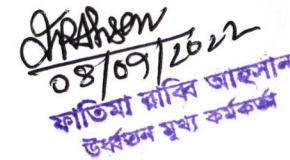 08/09/2022
ফাতিমা রাব্বি আহসান
ঊর্ধ্বতন মুখ্য কর্মকর্তা